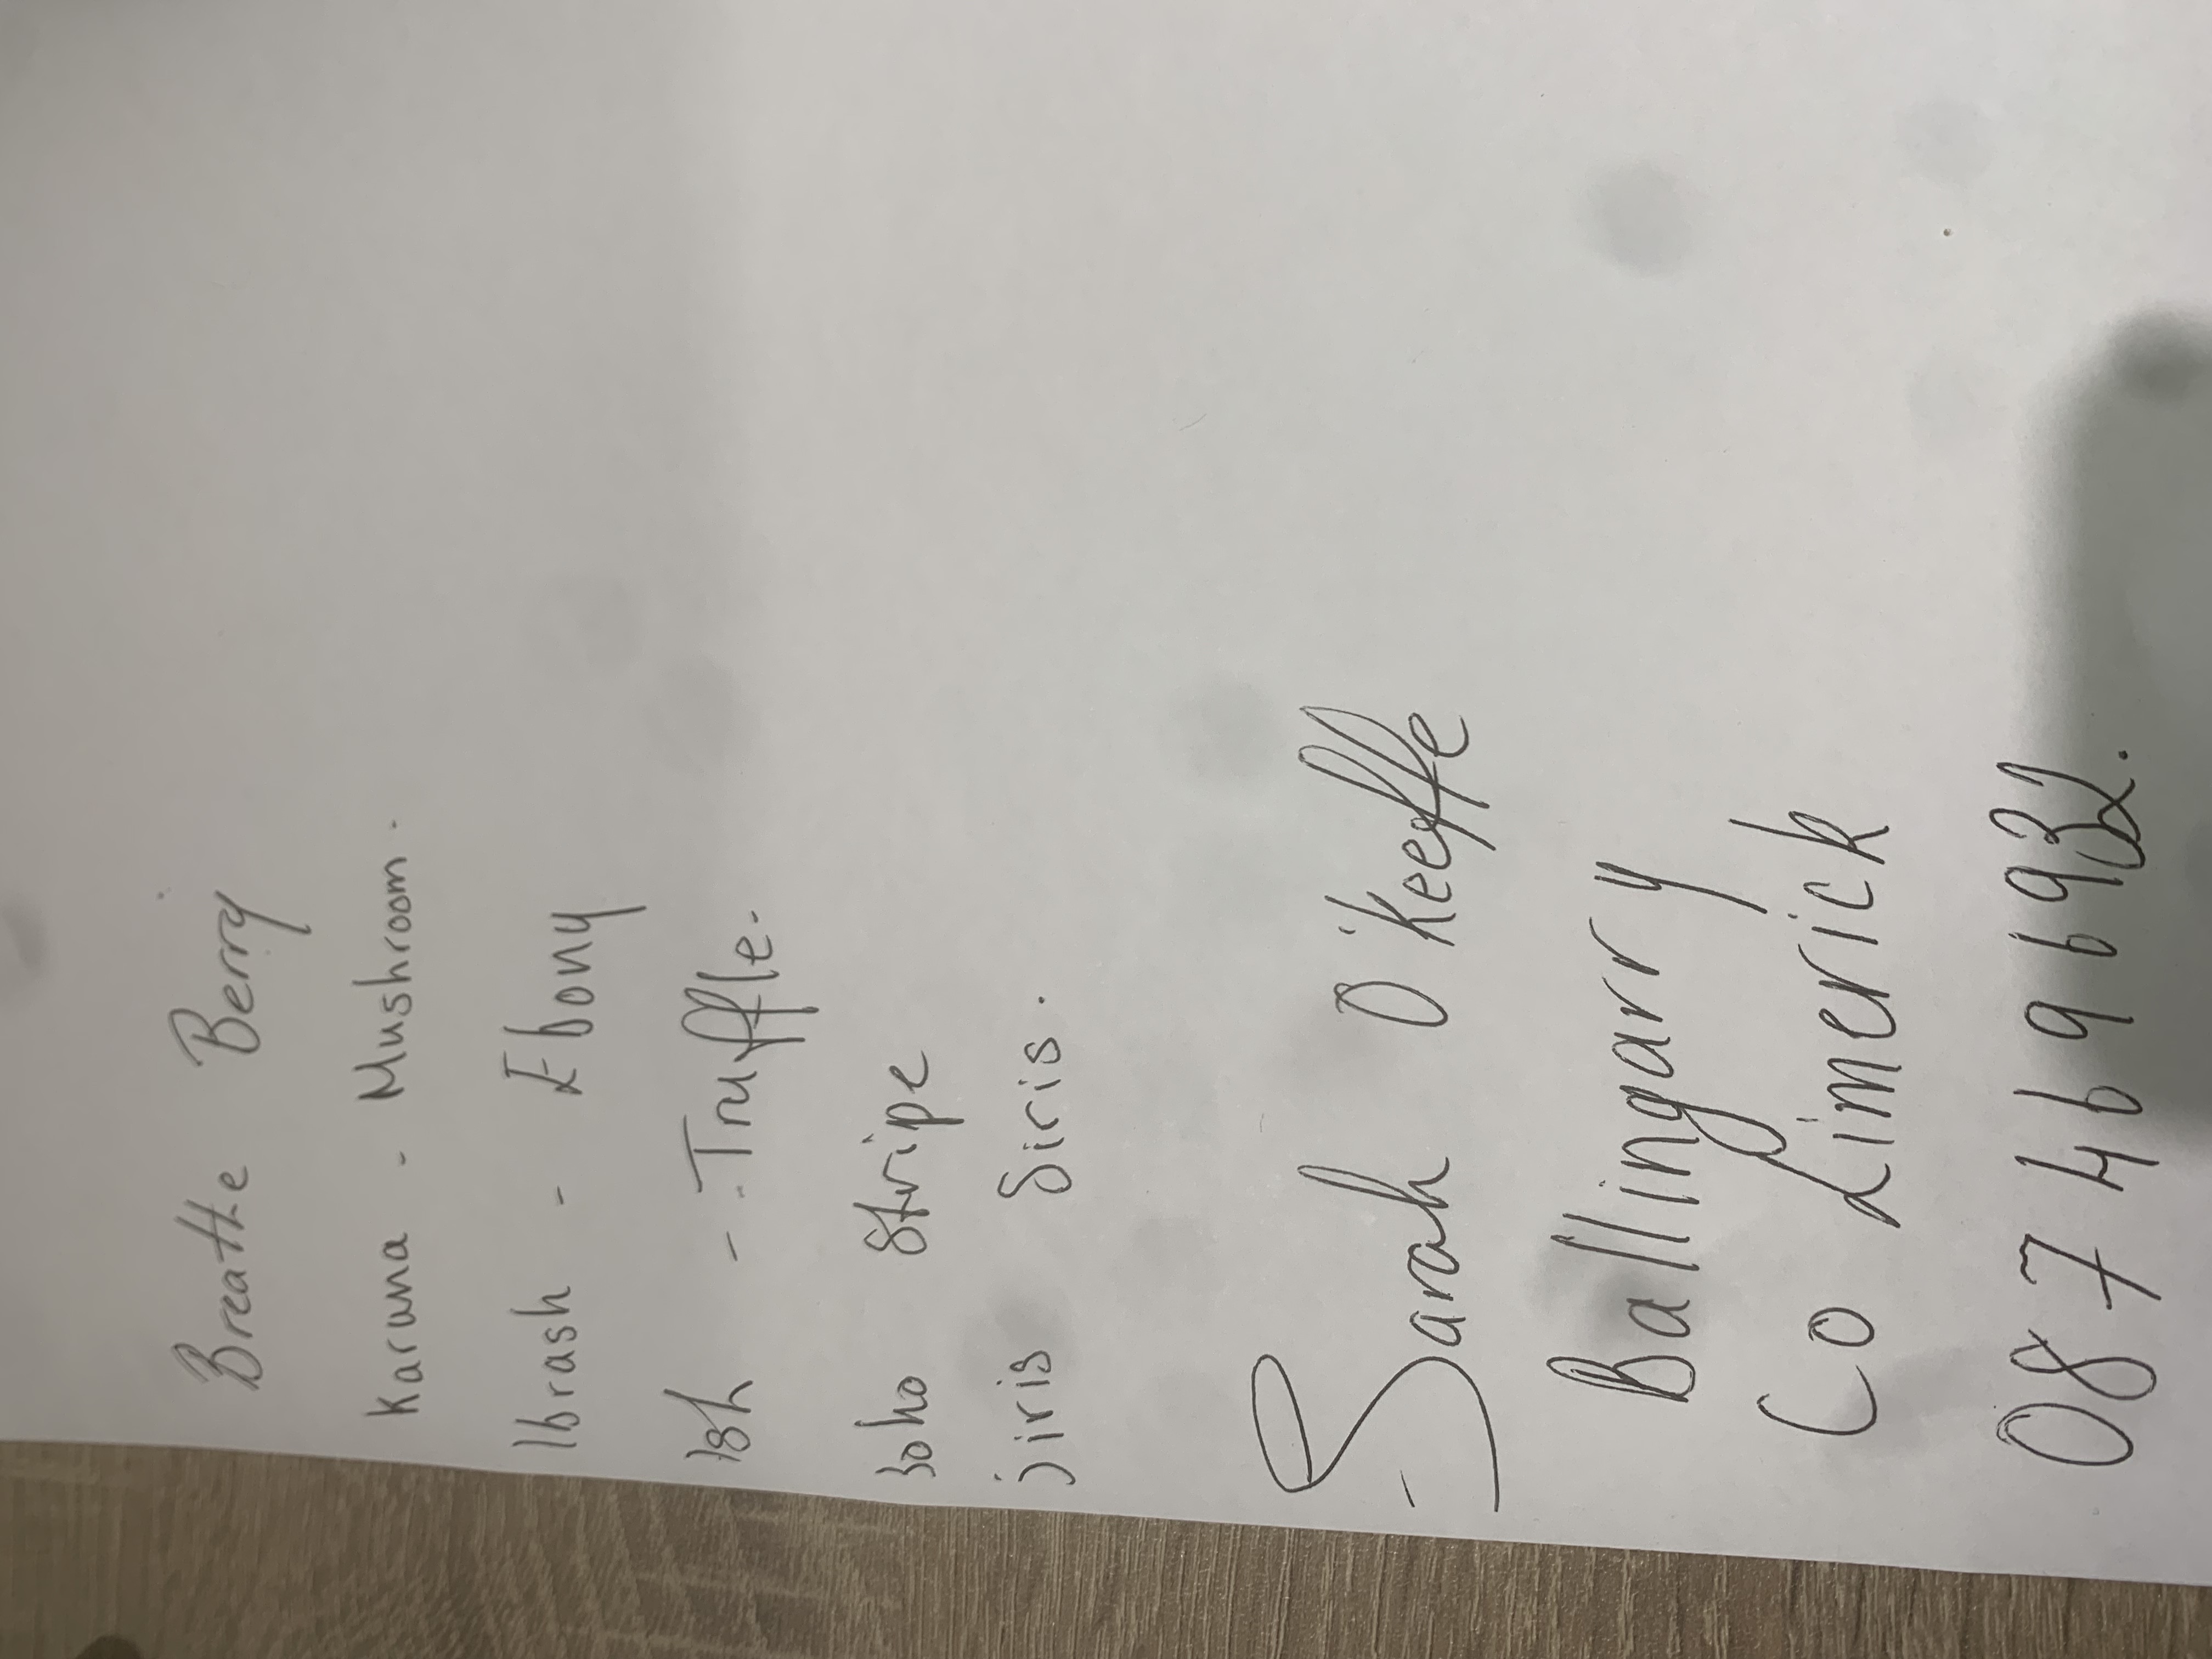 Breathe Berry
Karuna - Mushroom.
Ibrash - Ebony
- Truffle.
Soho Stripe
jiris Siris.
Sarah O'Keeffe
Ballingarry
Co Limerick
087 46 96932.